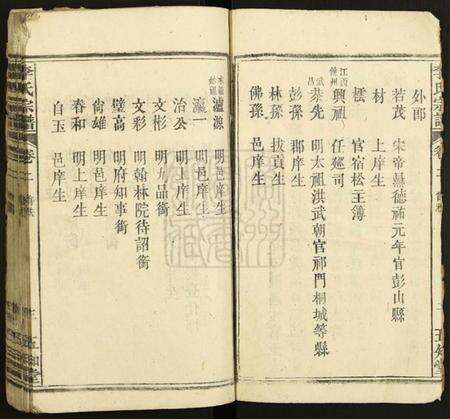 李氏宗譜
卷二
五知堂
外郎
若茂 宋帝㬎德祐元年官彭山縣
材 上庠生
櫄 官宿松主簿
江西德州 興祖 任廵司
武昌 恭先 明太祖洪武朝官祁門桐城等縣
彭孫 郡庠生
林孫 拔貢生
佛孫 邑庠生
瀘源 明庠生
瀛一 明邑庠生
治公 明庠生
文彬 明九品銜
文彩 明翰林院待詔銜
璧高 明府知事銜
尚雄 明邑庠生
春和 明上庠生
自玉 邑庠生
李氏宗譜
卷二
五知堂